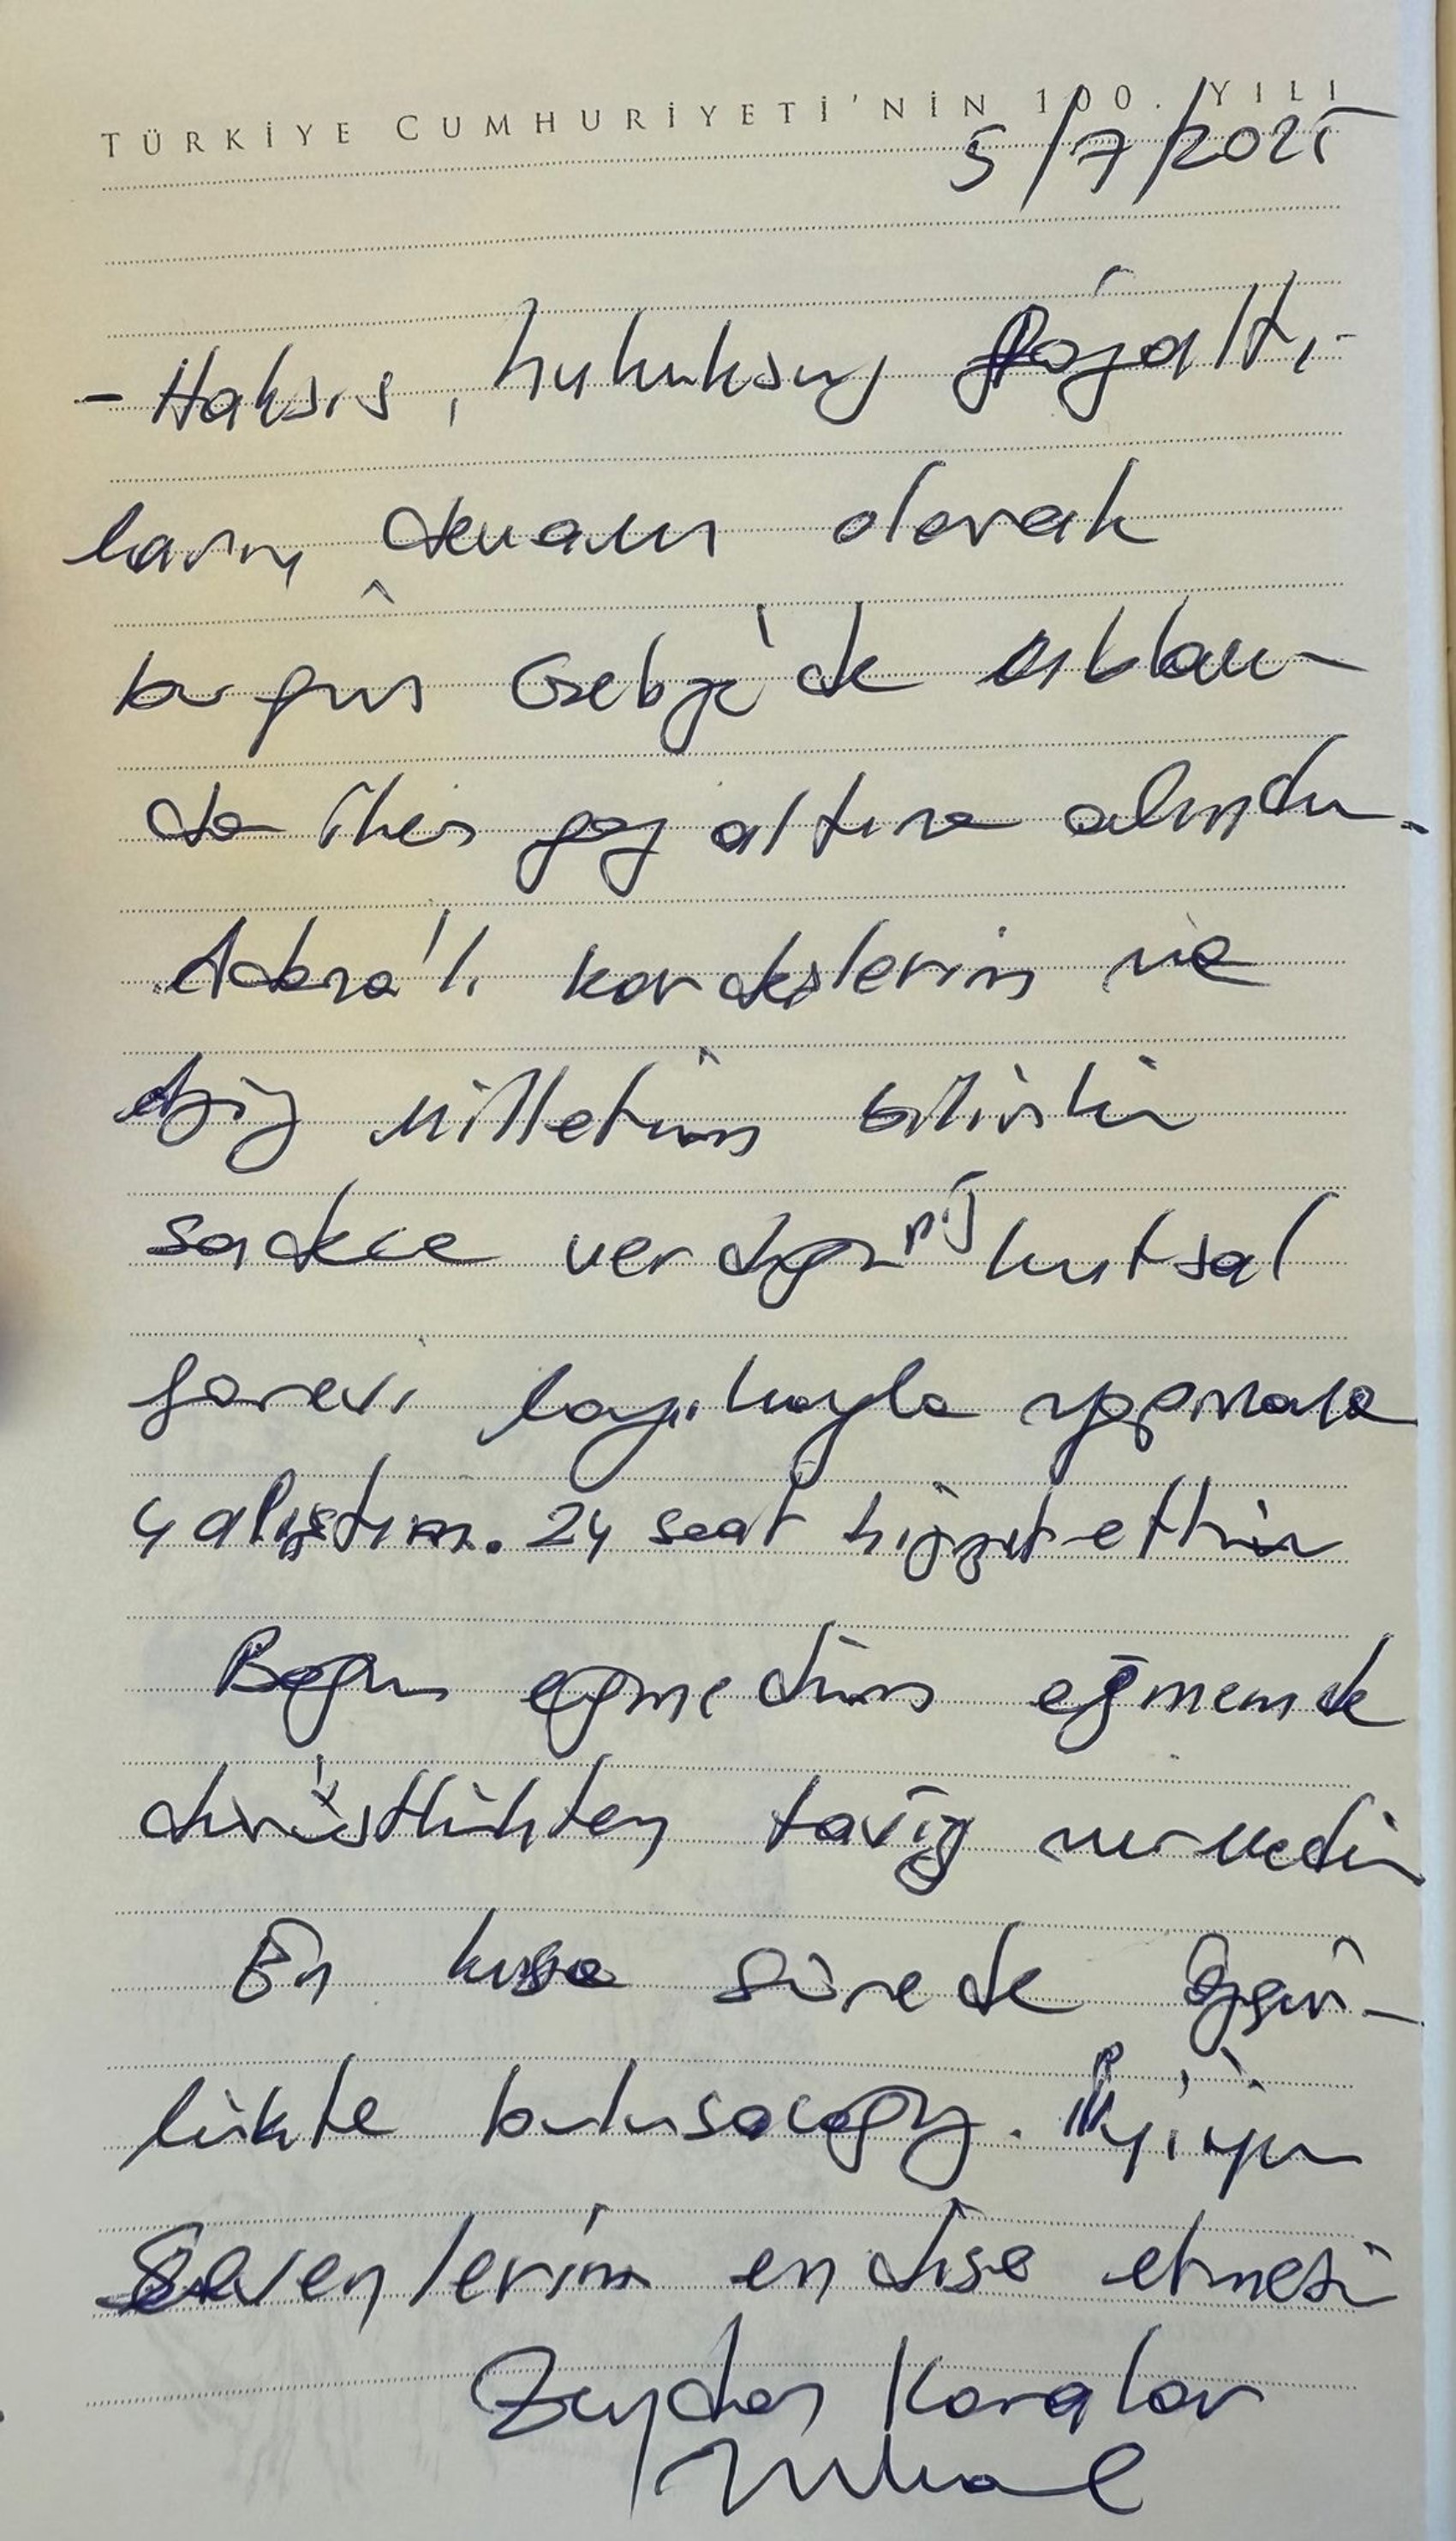 TÜRKİYE CUMHURİYETİ'NİN 100. YILI
5/7/2025
- Haksız, hukuksuz gözaltı-
ların devamı olarak
bugün Gebze'de ablam-
da iken göz altına alındım.
Adana'lı kardeşlerim ve
Aziz milletim bilsin ki
sadece verdiğiniz kutsal
görevi layıkıyla yapmaya
çalıştım. 24 saat hizmet ettim
Boyun eğmedim eğmem de
dürüstlükten taviz vermedim
En kısa sürede özgür-
lükte buluşacağız. İyiyim
Sevenlerim endişe etmesin
Zeydan Karalar